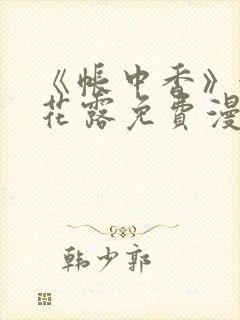 《帐中香》
花露免费漫
韩少郭